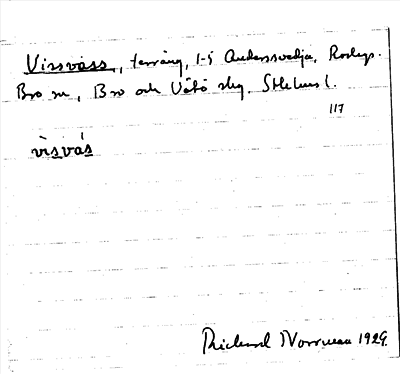 Vissvass, terräng, 1-5 Anderssvedja, Roslags-
Bro sn, Bro och Vätö skg, Sthlms l.
117
vìsvás
Rickard Norrman 1929.